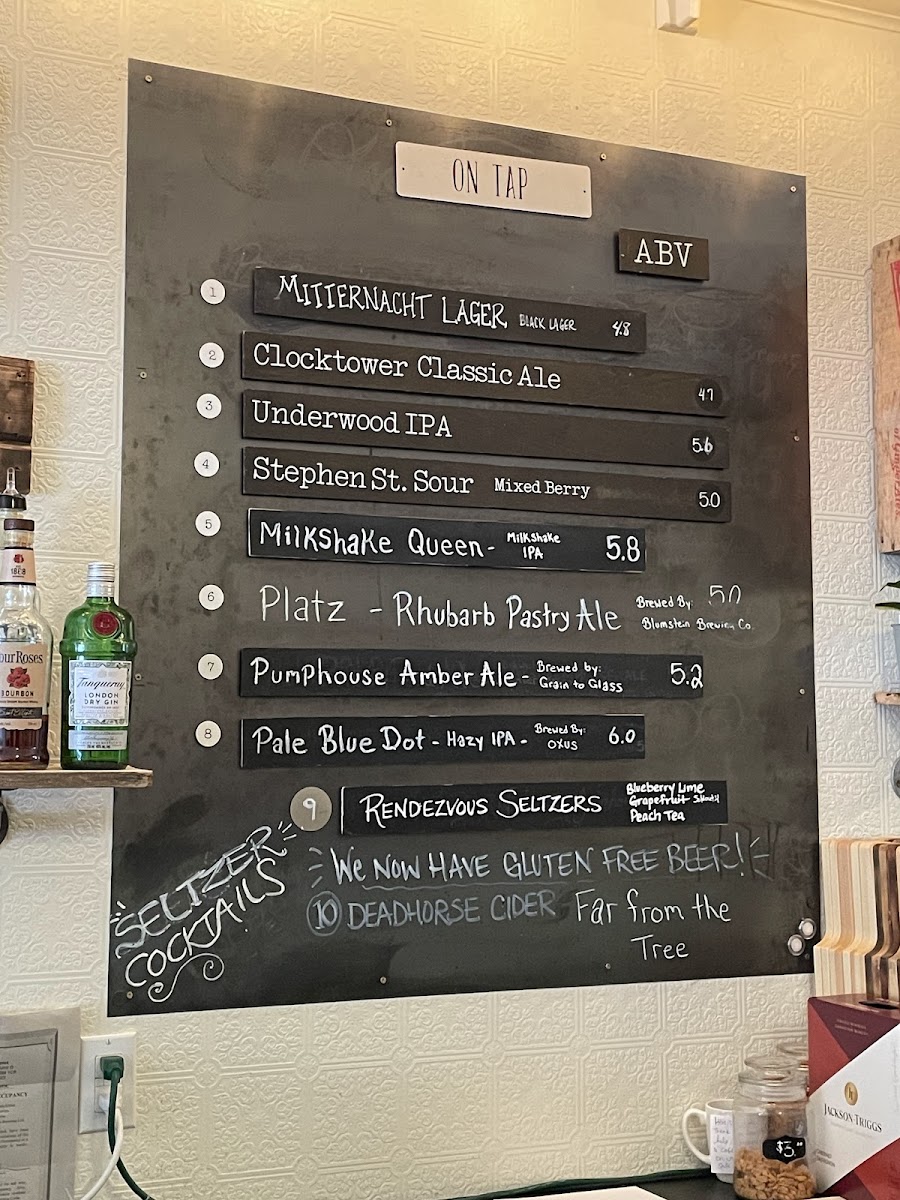 ON TAP
ABV
1 MITTERNACHT LAGER BLACK LAGER 4.8
2 Clocktower Classic Ale 4.7
3 Underwood IPA 5.6
4 Stephen St. Sour Mixed Berry 5.0
5 Milkshake Queen - Milkshake IPA 5.8
6 Platz - Rhubarb Pastry Ale Brewed By: Blumstein Brewing Co. 5.0
7 Pumphouse Amber Ale - Brewed by: Grain to Glass 5.2
8 Pale Blue Dot - Hazy IPA - Brewed By: OXUS 6.0
9 RENDEZVOUS SELTZERS Blueberry Lime
Grapefruit
Peach Tea
SELTZER
COCKTAILS
We NOW HAVE GLUTEN FREE BEER!
10 DEADHORSE CIDER Far from the
Tree
1888
Four Roses
BOURBON
Tanqueray
LONDON
DRY GIN
JACKSON-TRIGGS